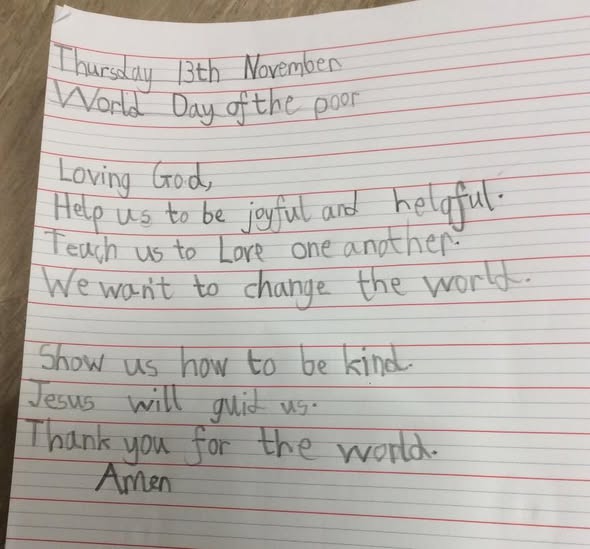 Thursday 13th November
World Day of the poor
Loving God,
Help us to be joyful and helqful.
Teach us to Love one another.
We want to change the world.
Show us how to be kind.
Jesus will guid us.
Thank you for the world.
Amen